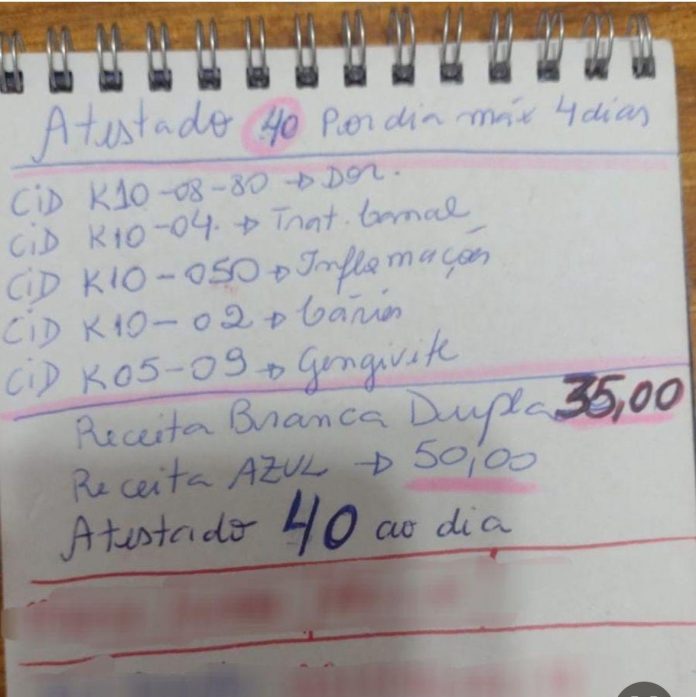 Atestado 40 Por dia máx 4 dias
CiD K10-08-80 → Dor.
CiD K10-04. → Trat. Canal
CiD K10-050 → Inflamações
CiD K10-02 → Cáries
CiD K05-09 → Gengivite
Receita Branca Dupla 35,00
Receita AZUL → 50,00
Atestado 40 ao dia